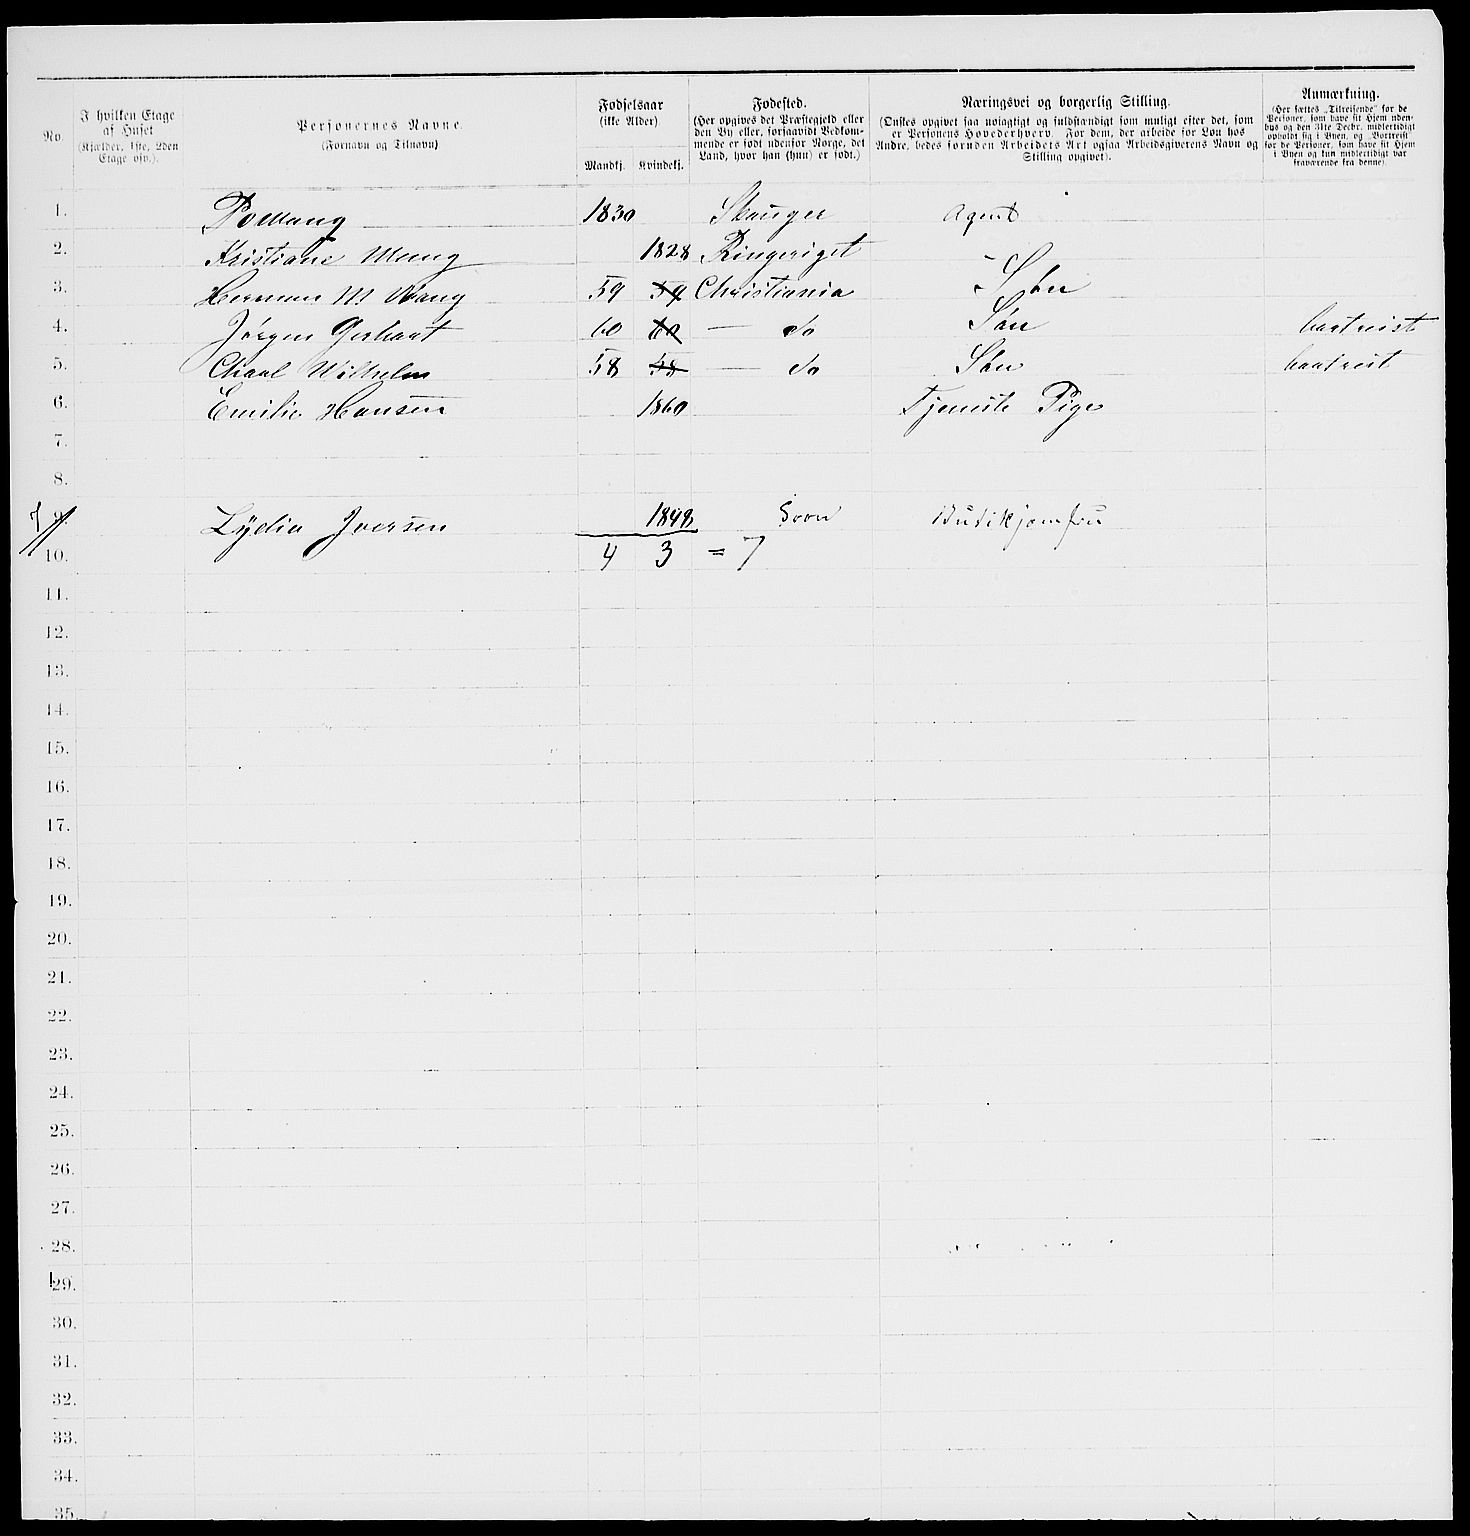 No.
I hvilken Etage af Huset (Kjælder, 1ste, 2den Etage osv.).
Personernes Navne. (Fornavn og Tilnavn)
Fødselsaar (ikke Alder)
Mandkj. Kvindekj.
Fødested. (Her opgives det Præstegjeld eller den By eller, forsaavidt Vedkommende er født udenfor Norge, det Land, hvor han (hun) er født.)
Næringsvei og borgerlig Stilling. (Ønskes opgivet saa nøiagtigt og fuldstændigt som muligt efter det, som er Personens Hovederhverv. For dem, der arbeide for Løn hos Andre, bedes foruden Arbeidets Art ogsaa Arbeidsgiverens Navn og Stilling opgivet).
Anmærkning. (Her sættes „Tilreisende" for de Personer, som have sit Hjem udenbys og den 31te Decbr. midlertidigt opholdt sig i Byen, og „Bortreist" for de Personer, som have sit Hjem i Byen og kun midlertidigt var fraværende fra denne).
1. 1830 Skauger Agent
2. Kristiane Wang 1828 Ringeriget
3. Herman M Wang 59 59 Christiania Søn
4. Jørgen Gerhart 60 60 — do Søn bortreist
5. Charl Wilhelm 58 58 — do Søn bortreist
6. Emilie Hansen 1860 Tjeneste Pige
7.
8.
9. Lydia Iversen 1848 Soon Butikjomfru
10. 4 3 = 7
11.
12.
13.
14.
15.
16.
17.
18.
19.
20.
21.
22.
23.
24.
25.
26.
27.
28.
29.
30.
31.
32.
33.
34.
35.